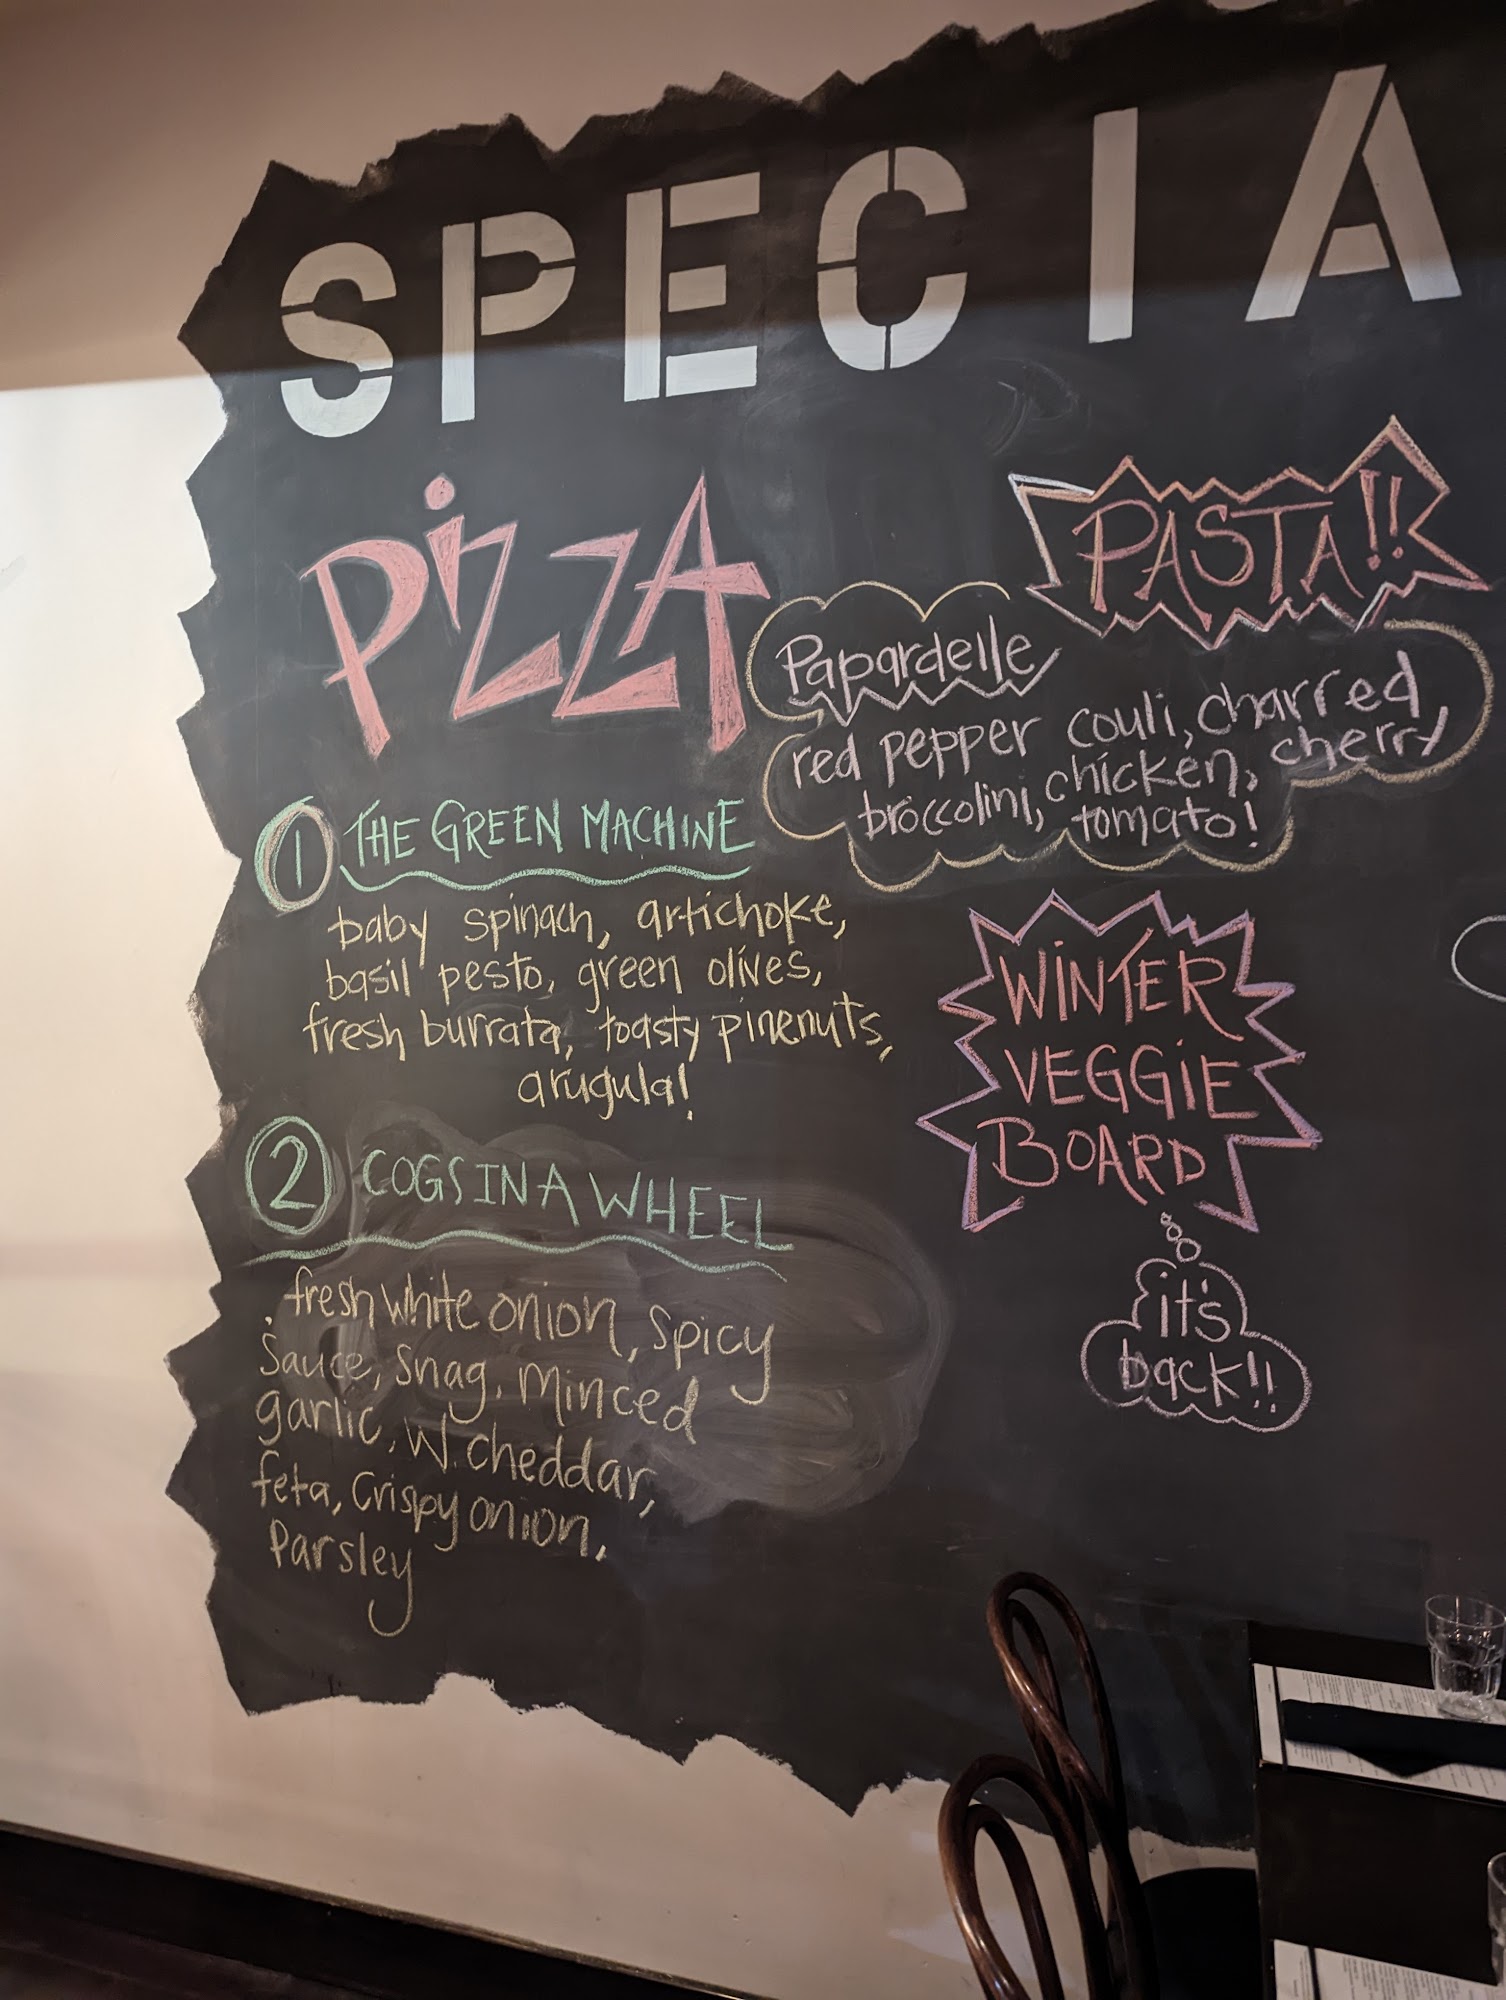 SPECIA
PiZZA
1 THE GREEN MACHINE
baby spinach, artichoke,
basil pesto, green olives,
fresh burrata, toasty pinenuts,
arugula!
2 COGS IN A WHEEL
fresh white onion, spicy
sauce, snag, minced
garlic, W. cheddar,
feta, Crispy onion,
Parsley
PASTA!!
Papardelle
red pepper couli, charred
broccolini, chicken, cherry
tomato!
WiNTER
VEGGiE
BOARD
it's
back!!